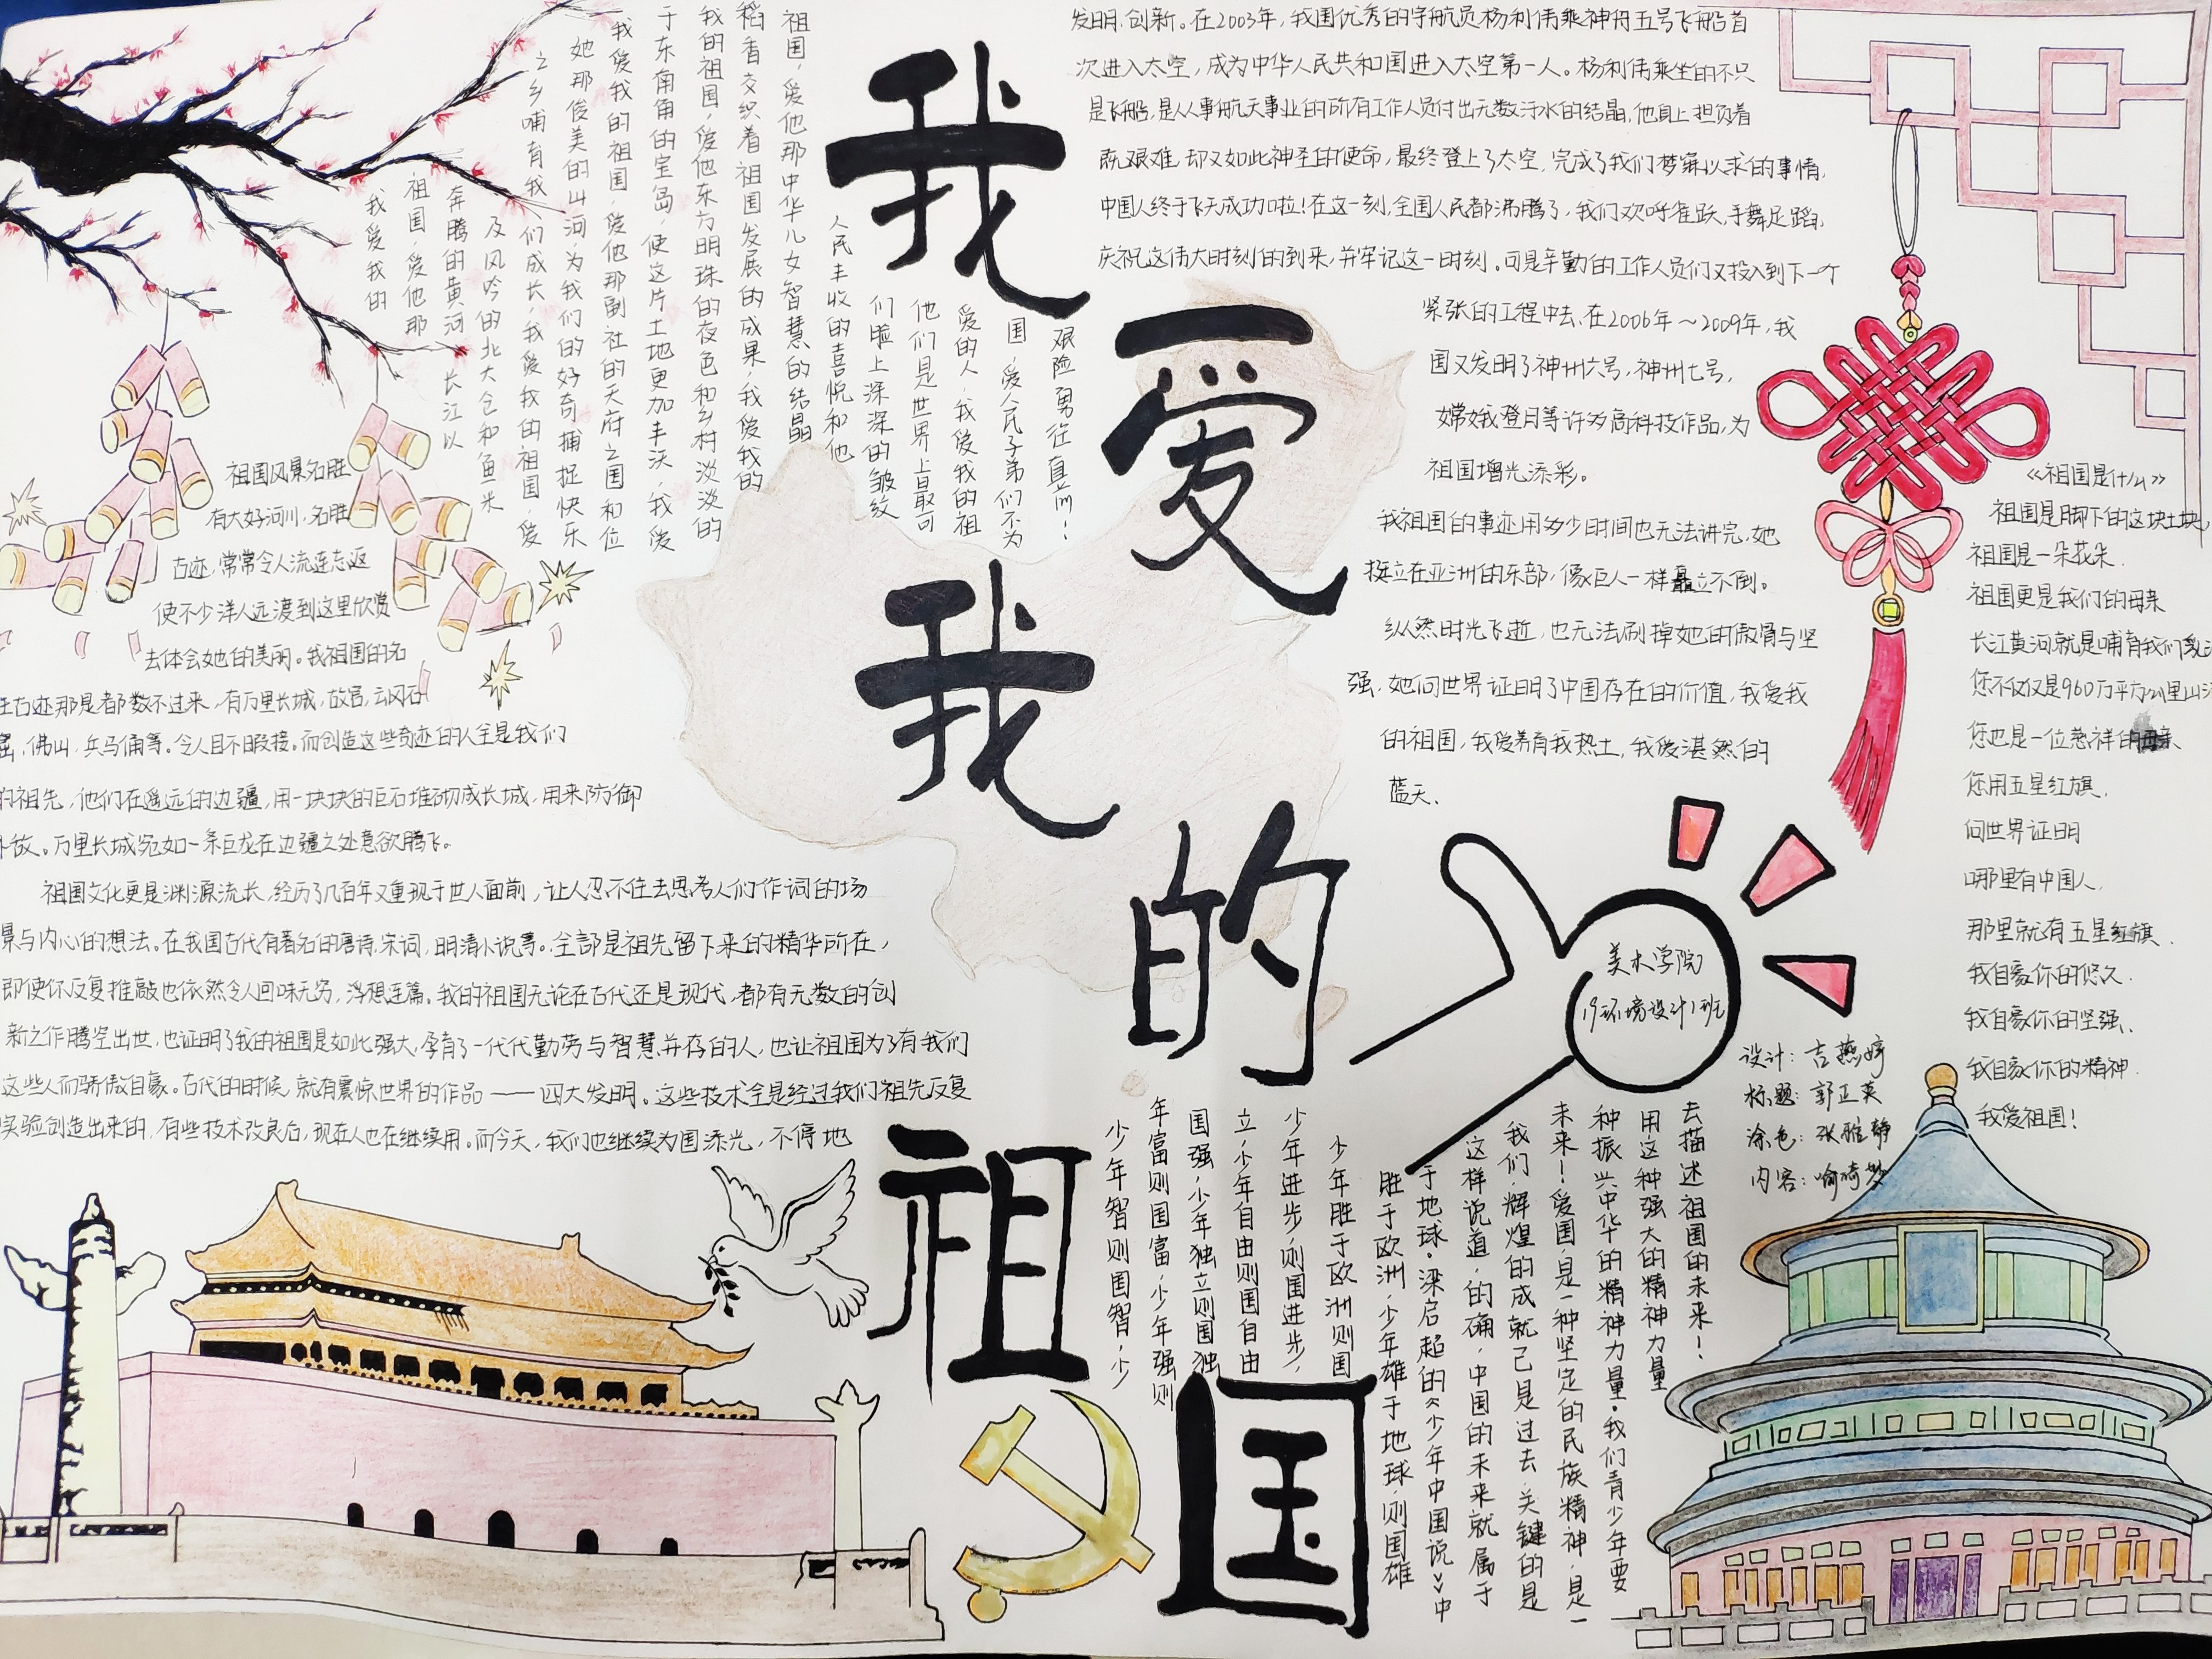 我爱我的祖国
我爱我的
祖国，爱他那
奔腾的黄河长江以
及风吟的北大仓和鱼米
之乡哺育我们成长，我爱我的祖国，爱
她那俊美的山河，为我们的好奇捕捉快乐
我爱我的祖国，爱他那副社的天府之国和位
于东南角的宝岛，使这片土地更加丰沃，我爱
我的祖国，爱他东方明珠的夜色和乡村淡淡的
稻香交织着祖国发展的成果，我爱我的
祖国，爱他那中华儿女智慧的结晶
人民丰收的喜悦和他
们脸上深深的皱纹
他们是世界上最可
爱的人，我爱我的祖
国，爱人民子弟们不为
艰险勇往直前！
祖国风景名胜
有大好河川，名胜
古迹，常常令人流连忘返
使不少洋人远渡到这里欣赏
去体会她的美丽。我祖国的名
胜古迹那是都数不过来，有万里长城，故宫，云冈石
窟，佛山，兵马俑等。令人目不暇接。而创造这些奇迹的人全是我们
的祖先，他们在遥远的边疆，用一块块的巨石堆砌成长城，用来防御
外敌。万里长城宛如一条巨龙在边疆之处意欲腾飞。
祖国文化更是渊源流长，经历了几百年又重现于世人面前，让人忍不住去思考人们作词的场
景与内心的想法。在我国古代有著名的唐诗，宋词，明清小说等。全部是祖先留下来的精华所在，
即使你反复推敲也依然令人回味无穷，浮想连篇。我的祖国无论在古代还是现代，都有无数的创
新之作腾空出世，也证明了我的祖国是如此强大，孕育了一代代勤劳与智慧并存的人，也让祖国为了有我们
这些人而骄傲自豪。古代的时候，就有震惊世界的作品——四大发明。这些技术全是经过我们祖先反复
实验创造出来的，有些技术改良后，现在人也在继续用。而今天，我们也继续为国添光，不停地
发明，创新。在2003年，我国优秀的宇航员杨利伟乘神舟五号飞船首
次进入太空，成为中华人民共和国进入太空第一人。杨利伟乘坐的不只
是飞船，是人人事航天事业的所有工作人员付出无数汗水的结晶，他身上担负着
既艰难，却又如此神圣的使命，最终登上了太空，完成了我们梦寐以求的事情，
中国人终于飞天成功啦！在这一刻，全国人民都沸腾了，我们欢呼雀跃，手舞足蹈，
庆祝这伟大时刻的到来，并牢记这一时刻。可是辛勤的工作人员们又投入到下一个
紧张的工程中去，在2006年～2009年，我
国又发明了神州六号，神州七号，
嫦娥登月等许多高科技作品，为
祖国增光添彩。
我祖国的事迹用多少时间也无法讲完，她
挺立在亚洲的东部，像巨人一样矗立不倒。
纵然时光飞逝，也无法刷掉她的傲骨与坚
强，她向世界证明了中国存在的价值，我爱我
的祖国，我爱养育我热土，我爱湛然的
蓝天。
《祖国是什么》
祖国是脚下的这块土块
祖国是一朵花朵
祖国更是我们的母亲
长江黄河就是哺育我们
您不仅仅是960万平方公里山
您也是一位慈祥的母亲
您用五星红旗，
向世界证明
哪里有中国人，
那里就有五星红旗，
我自豪你的悠久，
我自豪你的坚强，
我自豪你的精神，
我爱祖国！
美术学院
19环境设计1班
设计：吉燕婷
标题：郭正英
涂色：张雅静
内容：喻琦梦
少年智则国智，少
年富则国富，少年强则
国强，少年独立则国独
立，少年自由则国自由
少年进步，则国进步，
少年胜于欧洲则国
胜于欧洲，少年雄于地球，则国雄
于地球。梁启超的《少年中国说》中
这样说道，的确，中国的未来就属于
我们，辉煌的成就已是过去，关键的是
未来！爱国，是一种坚定的民族精神，是一
种振兴中华的精神力量。我们青少年要
用这种强大的精神力量
去描述祖国的未来！